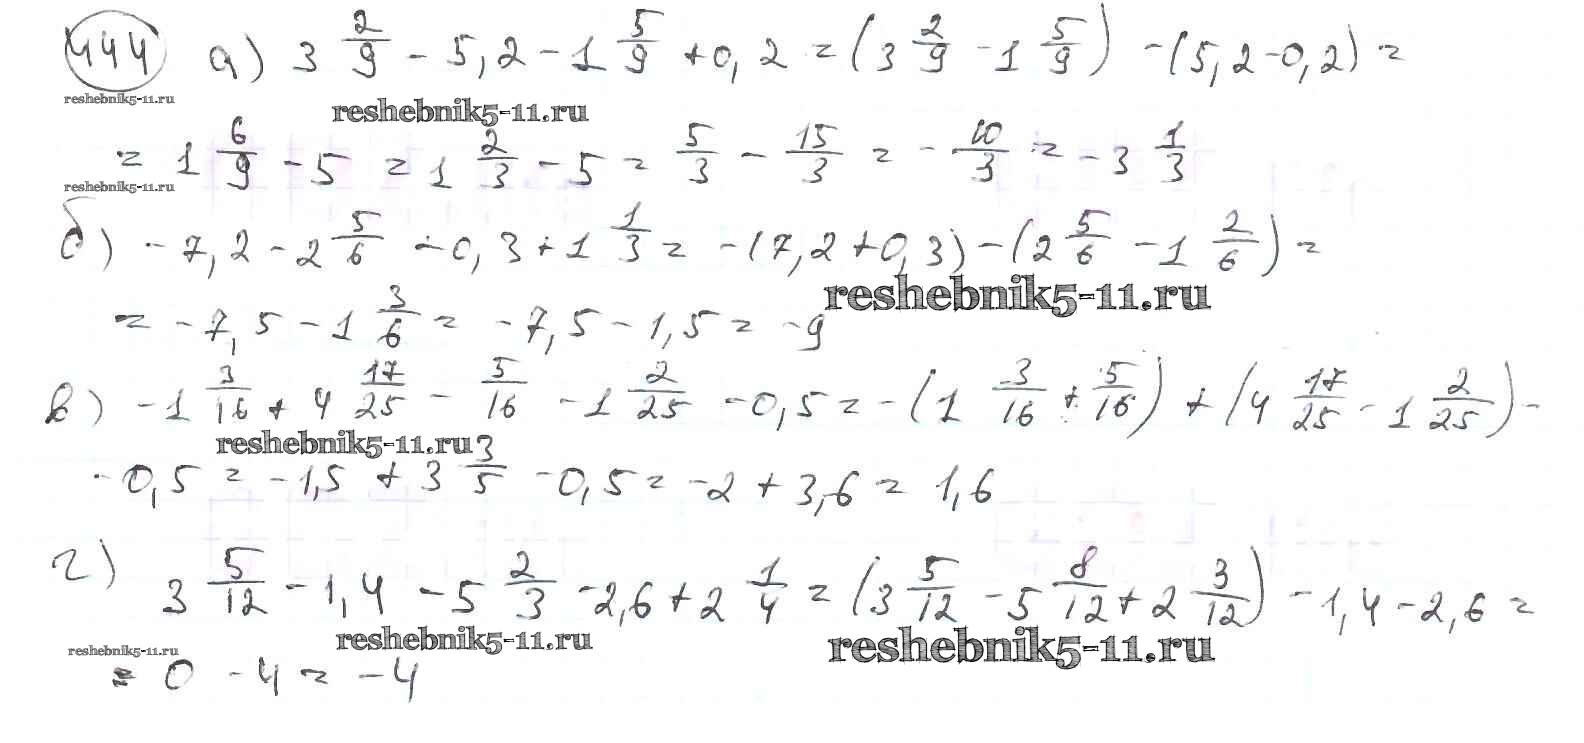 444 а) 3 2/9 - 5,2 - 1 5/9 + 0,2 = (3 2/9 - 1 5/9) - (5,2 - 0,2) =
reshebnik5-11.ru reshebnik5-11.ru
= 1 6/9 - 5 = 1 2/3 - 5 = 5/3 - 15/3 = - 10/3 = - 3 1/3
reshebnik5-11.ru
б) - 7,2 - 2 5/6 - 0,3 + 1 1/3 = - (7,2 + 0,3) - (2 5/6 - 1 2/6) =
reshebnik5-11.ru
= - 7,5 - 1 3/6 = - 7,5 - 1,5 = - 9
в) - 1 3/16 + 4 17/25 - 5/16 - 1 2/25 - 0,5 = - (1 3/16 + 5/16) + (4 17/25 - 1 2/25) -
reshebnik5-11.ru
- 0,5 = - 1,5 + 3 3/5 - 0,5 = - 2 + 3,6 = 1,6
г) 3 5/12 - 1,4 - 5 2/3 - 2,6 + 2 1/4 = (3 5/12 - 5 8/12 + 2 3/12) - 1,4 - 2,6 =
reshebnik5-11.ru reshebnik5-11.ru reshebnik5-11.ru
= 0 - 4 = - 4